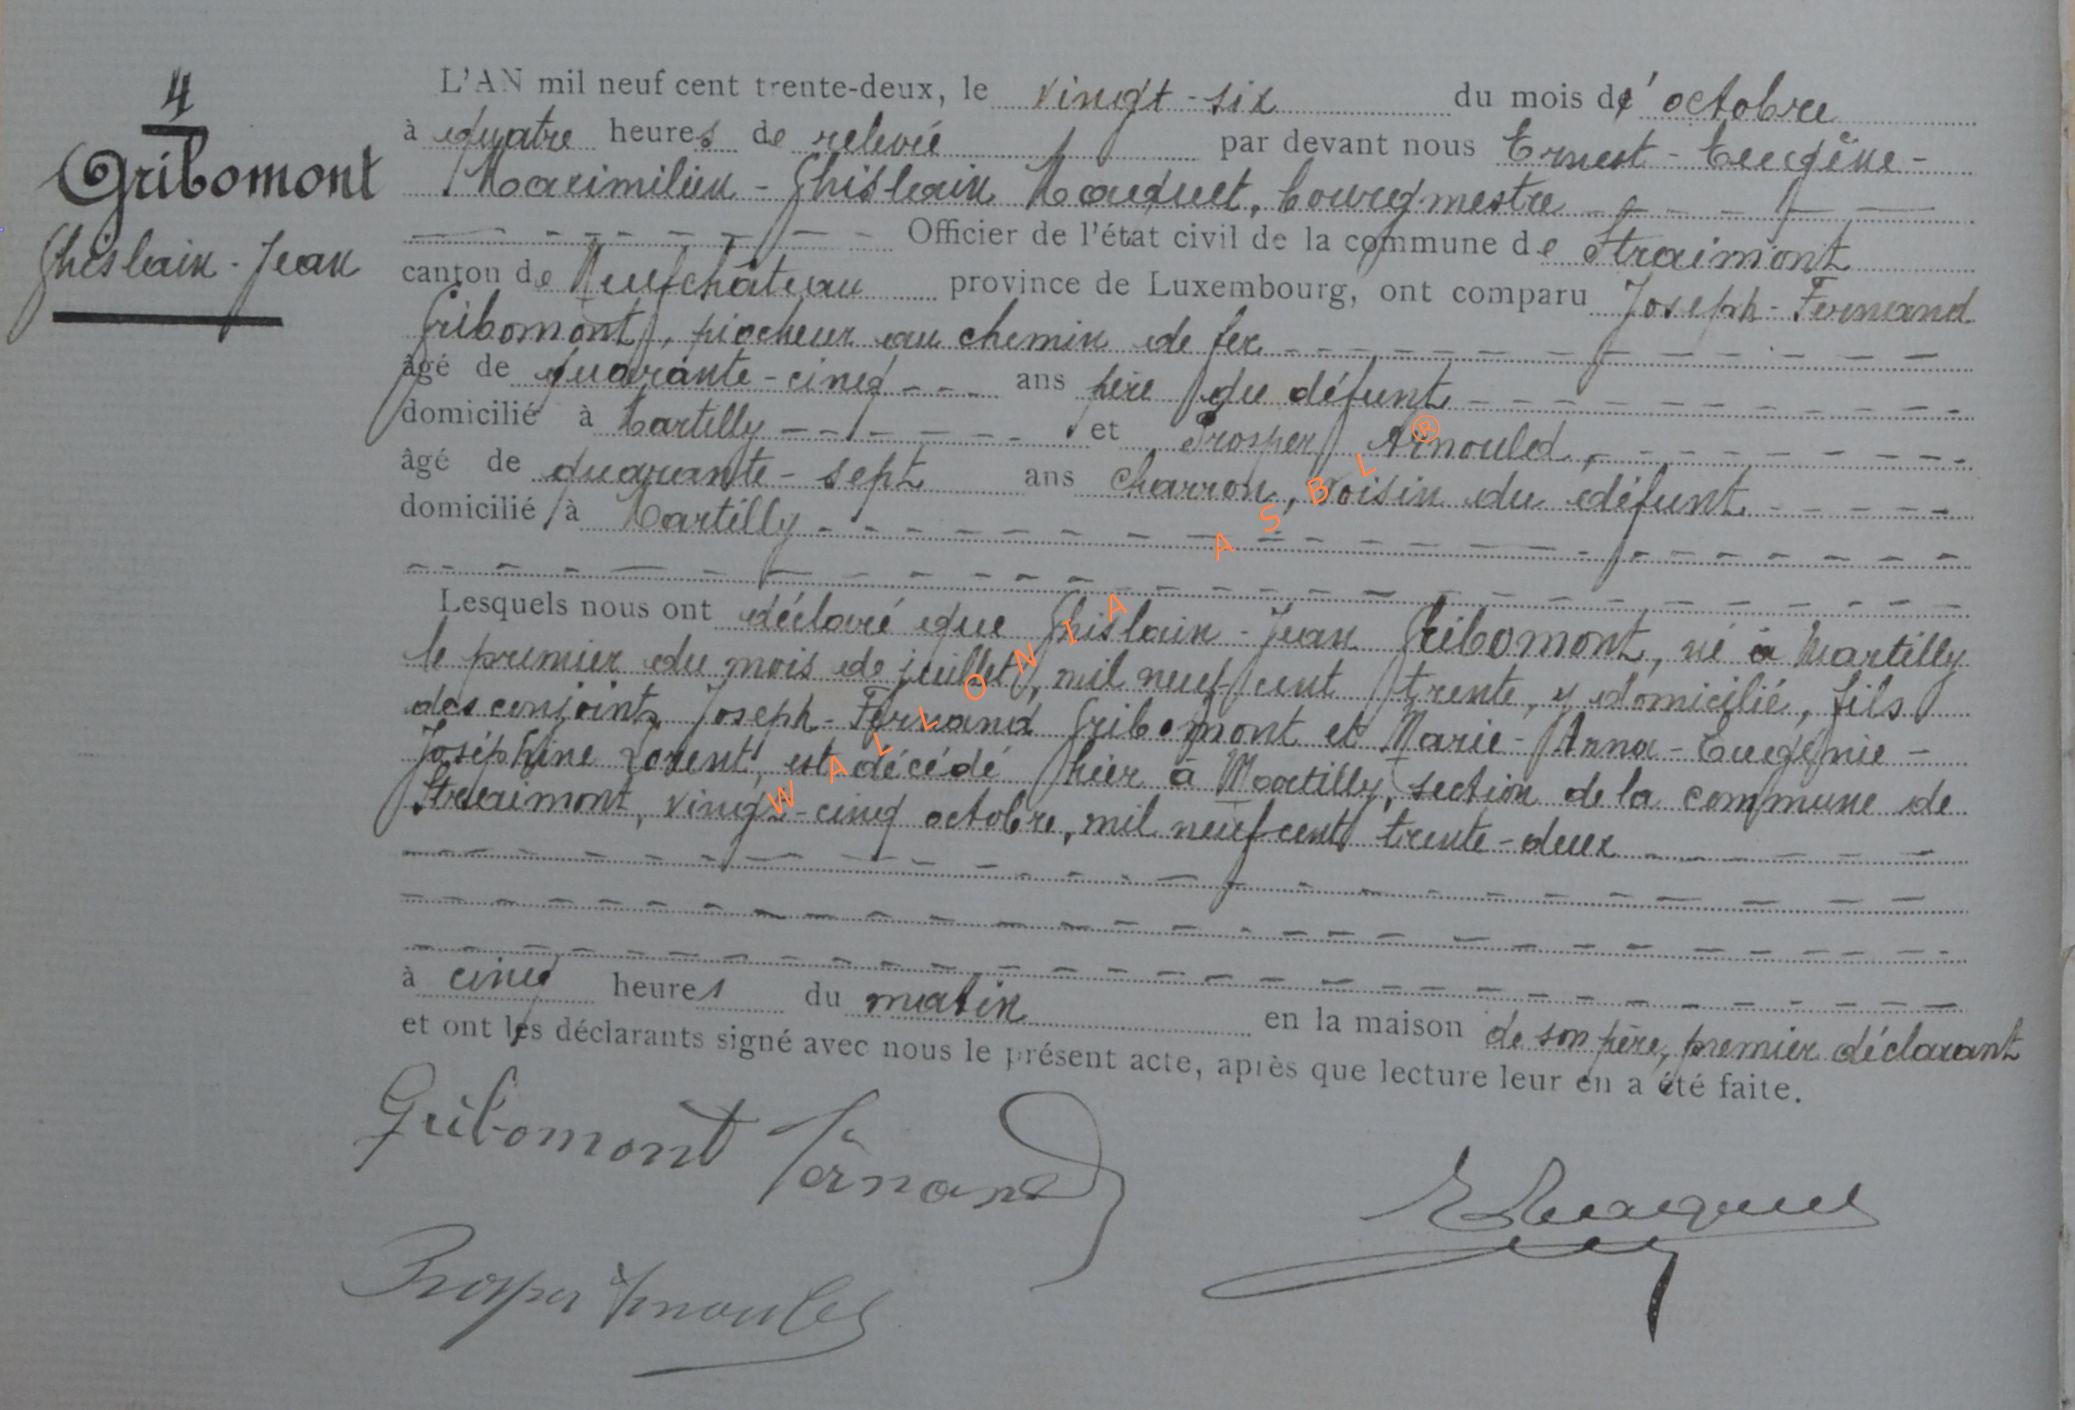 4
Gribomont
Ghislain - Jean
L'AN mil neuf cent trente-deux, le vingt-six du mois d' octobre
à quatre heures de relevée par devant nous Ernest - Eugène -
Maximilien - Ghislain Maquet, bourgmestre
Officier de l'état civil de la commune de Straimont
canton de Neufchâteau province de Luxembourg, ont comparu Joseph - Fernand
Gribomont, piocheur au chemin de fer
âgé de quarante-cinq ans père du défunt
domicilié à Martilly et Prosper Arnould,
âgé de quarante-sept ans charron, voisin du défunt
domicilié à Martilly
Lesquels nous ont déclaré que Ghislain - Jean Gribomont, né à Martilly
le premier du mois de juillet, mil neuf cent trente, y domicilié, fils
des conjoints Joseph - Fernand Gribomont et Marie - Anna - Eugénie -
Joséphine Zorent, est décédé hier à Martilly, section de la commune de
Straimont, vingt-cinq octobre, mil neuf cent trente-deux
à cinq heures du matin en la maison de son père, premier déclarant
et ont les déclarants signé avec nous le présent acte, après que lecture leur en a été faite.
Gribomont Fernand
Prosper Arnould
WALLONIA ASBL ®